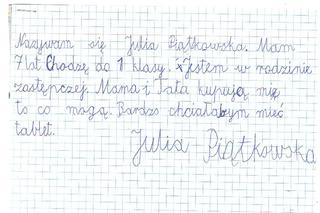 Nazywam się Julia Piątkowska. Mam
7 lat Chodzę do 1 klasy. Jestem w rodzinie
zastępczej. Mama i Tata kupują mię
to co mogą. Bardzo chciałabym mieć
tablet.
Julia Piątkowska